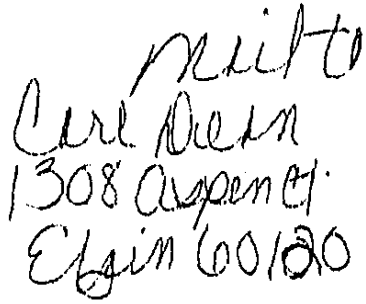 Mail to
Carl Dean
1308 Aspen Ct.
Elgin 60120